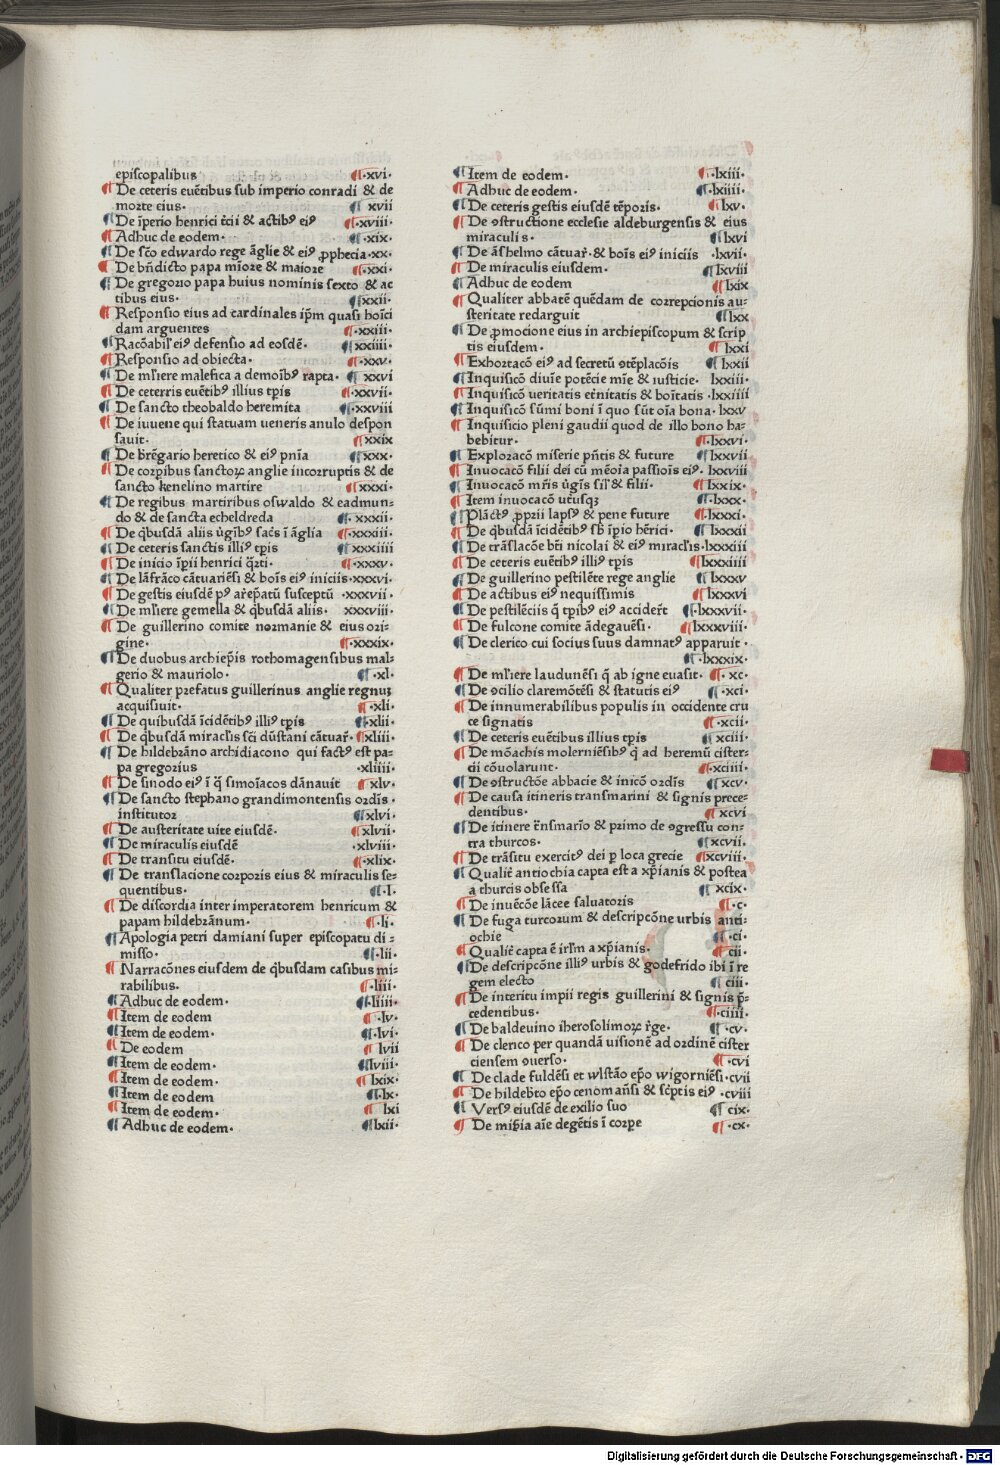 episcopalibus ·xvi·
De ceteris euētibus sub imperio conradi & de
morte eius· xvii
De īperio henrici t̄cii & actibꝰ eiꝰ ·xviii·
Adhuc de eodem· ·xix·
De scō edwardo rege āglie & eiꝰ ꝓphecia·xx·
De bn̄dicto papa mīore & maiore ·xxi·
De gregorio papa huius nominis sexto & ac
tibus eius· xxii·
Responsio eius ad cardinales ip̄m quasi hoīci
dam arguentes ·xxiii·
Racōabil' eiꝰ defensio ad eosdē· xxiiii·
Responsio ad obiecta· ·xxv·
De ml'iere malefica a demoībꝰ rapta· xxvi
De ceterris euētibꝰ illius tp̄is ·xxvii·
De sancto theobaldo heremita ·xxviii
De iuuene qui statuam ueneris anulo despon
sauit· xxix
De br̄egario heretico & eiꝰ pnīa ·xxx·
De corpibus sanctoꝝ anglie incorruptis & de
sancto kenelino martire ·xxxi·
De regibus martiribus oswaldo & eadmun-
do & de sancta echeldreda ·xxxii·
De q̇busdā aliis ûgībꝰ sac̄s ī āglia ·xxxiii·
De ceteris sanctis illiꝰ tp̄is xxxiiii
De inicio īpii henrici q̄rti· ·xxxv·
De lāfrāco cātuariēsi & bois eiꝰ iniciis·xxxvi·
De gestis eiusdē pꝰ ar̄ep̄atū susceptū ·xxxvii·
De ml'iere gemella & q̇busdā aliis· xxxviii·
De guillerino comite normanie & eius ori-
gine· ·xxxix·
De duobus archiep̄is rothomagensibus mal-
gerio & mauriolo· ·xl·
Qualiter prefatus guillerinus anglie regnuꝫ
acquisiuit· ·xli·
De quibusdā īcidētibꝰ illiꝰ tp̄is ·xlii·
De q̇busdā miracl'is sc̄i dūstani cātuar̄· xliii·
De hildebrāno archidiacono qui factꝰ est pa-
pa gregorius ·xliiii·
De sinodo eiꝰ ī q̄ simoīacos dānauit xlv·
De sancto stephano grandimontensis ordīs·
institutor xlvi·
De austeritate uite eiusdē· xlvii·
De miraculis eiusdē ·xlviii·
De transitu eiusdē· ·xlix·
De translacione corporis eius & miraculis se-
quentibus· ·l·
De discordia inter imperatorem henricum &
papam hildebrānum· ·li·
Apologia petri damiani super episcopatu di-
misso· ·lii·
Narracōnes eiusdem de q̇busdam casibus mi-
rabilibus· ·liii·
Adhuc de eodem· ·liiii·
Item de eodem ·lv·
Item de eodem· ·lvi·
De eodem lvii
Item de eodem· lviii·
Item de eodem· lxix·
Item de eodem ·lx·
Item de eodem· lxi
Adhuc de eodem· lxii·
Item de eodem· ·lxiii·
Adhuc de eodem· ·lxiiii·
De ceteris gestis eiusdē tēpozis· lxv·
De ꝯstructione ecclesie aldeburgensis & eius
miraculis· lxvi
De āshelmo cātuar̄· & bois eiꝰ iniciis ·lxvii·
De miraculis eiusdem· lxviii
Adhuc de eodem lxix
Qualiter abbatē quēdam de correpcionis au-
steritate redarguit lxx
De ꝓmocione eius in archiepiscopum & scrip
tis eiusdem· lxxi
Exhortacō eiꝰ ad secretū ꝯtēplacōis lxxii
Inquisicō diuīe potēcie mīe & iusticie· lxxiii·
Inquisicō ueritatis et̄nitatis & boītatis ·lxxiiii
Inquisicō sūmi boni ī quo sūt oīa bona·lxxv
Inquisicio pleni gaudii quod de illo bono ha-
bebitur· ·lxxvi·
Exploracō miserie pn̄tis & future lxxvii
Inuocacō filii dei cū mēoīa passiōīs eiꝰ· lxxviii
Inuocacō mr̄is ûgīs sil' & filii· lxxix·
Item inuocacō ut̄usqꝫ ·lxxx·
Plāctꝰ ꝓprii lapsꝰ & pene future ·lxxxi·
De q̇busdā īcidētibꝰ sb̄ īpio hērici· lxxxii
De trāslacōe bt̄i nicolai & eiꝰ miracl'is·lxxxiii
De ceteris euētibꝰ illiꝰ tp̄is lxxxiiii
De guillerino pestilēte rege anglie lxxxv
De actibus eiꝰ nequissimis lxxxvi
De pestilēciis q̄ tp̄ibꝰ eiꝰ accider̄t ·lxxxvii·
De fulcone comite ādegauēsi· lxxxviii·
De clerico cui socius suus damnatꝰ apparuit·
·lxxxix·
De ml'iere laudunēsi q̄ ab igne euasit· ·xc·
De ꝯcilio claremōtēsi & statutis eiꝰ ·xci·
De innumerabilibus populis in occidente cru
ce signatis ·xcii·
De ceteris euētibus illius tpis xciii·
De mōachis molerniēsibꝰ q̄ ad heremū cister-
cii cōuolarunt· ·xciiii·
De ꝯstructōe abbacie & inicō ordīs xcv·
De causa itineris transmarini & signis prece-
dentibus· xcvi
De itinere t̄nsmarīo & primo de ꝯgressu con-
tra thurcos· xcvii·
De trāsitu exercitꝰ dei ꝑ loca grecie xcviii·
Qualit̄ antiochia capta est a xp̄ianis & postea
a thurcis obsessa xcix·
De inuēcōe lācee saluatoris ·c·
De fuga turcorum & descripcōne urbis anti-
ochie ·ci·
Qualit̄ capta ē irl̄m a xp̄ianis· cii·
De descripcōne illiꝰ urbis & godefrido ibi ī re
gem electo ciii·
De interitu impii regis guillerini & signis p̄-
cedentibus· ·ciiii·
De baldeuino iherosolimoꝝ r̄ge· ·cv·
De clerico per quandā uisionē ad ordinē cister
ciensem ꝯuerso· ·cvi
De clade fuldēsi et wlstāo ep̄o wigorniēsi·cvii
De hildebto ep̄o cenoman̄si & sc̄ptis eiꝰ ·cviii
Versꝰ eiusdē de exilio suo cix·
De mis̄ia aīe degētis ī corpe ·cx·
Digitalisierung gefördert durch die Deutsche Forschungsgemeinschaft · DFG